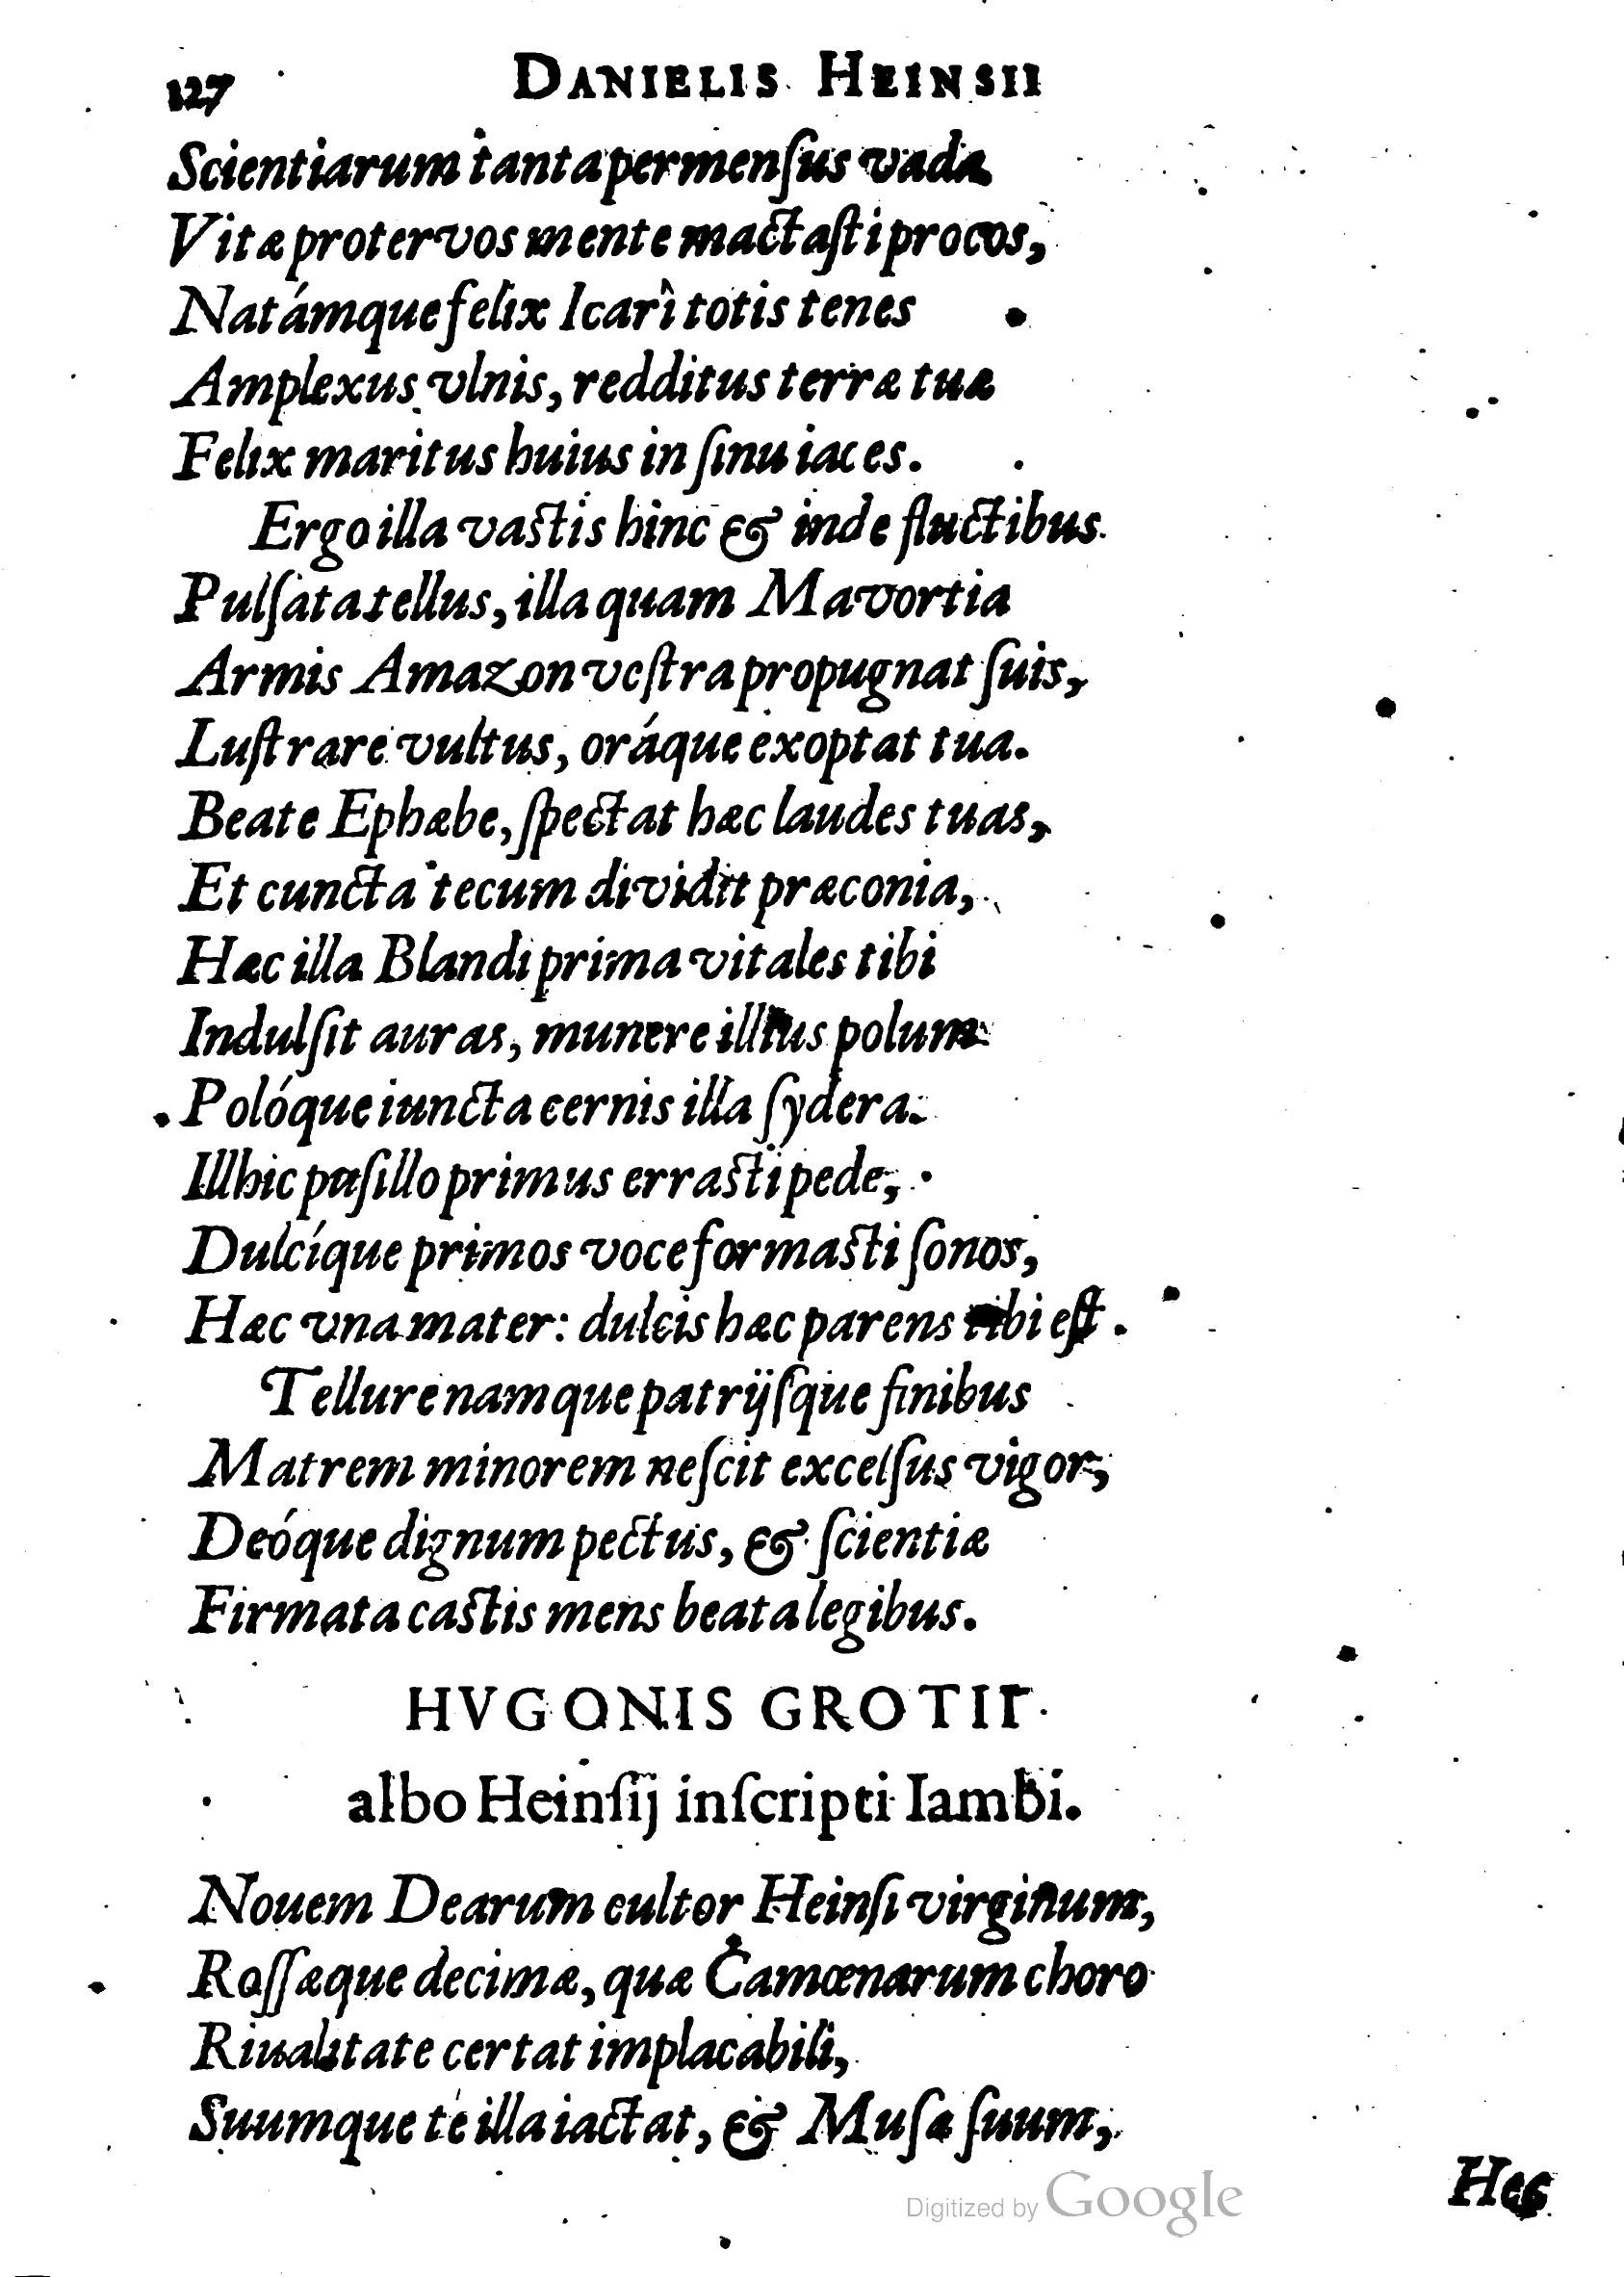 127 DANIELIS HEINSII
Scientiarum tanta permenſus vada
Vitæ protervos mente mactaſti procos,
Natámque felix Icarî totis tenes
Amplexus vlnis, redditus terræ tuæ
Felix maritus huius in ſinu iaces.
Ergo illa vastis hinc & inde fluctibus
Pulſata tellus, illa quam Mavortia
Armis Amazon veſtra propugnat ſuis,
Luſtrare vultus, oráque exoptat tua.
Beate Ephæbe, ſpectat hæc laudes tuas,
Et cuncta tecum dividit præconia,
Hæc illa Blandi prima vitales tibi
Indulſit auras, munere illius polum
Polóque iuncta cernis illa ſydera.
Illhic puſillo primus errasti pede,
Dulcíque primos voce formasti ſonos,
Hæc vna mater: dulcis hæc parens tibi eſt.
Tellure namque patrijſque finibus
Matrem minorem neſcit excelſus vigor,
Deóque dignum pectus, & ſcientiæ
Firmata castis mens beata legibus.
HVGONIS GROTII
albo Heinſij inſcripti Iambi.
Nouem Dearum cultor Heinſi virginum,
Roſſæque decimæ, quæ Camœnarum choro
Riualitate certat implacabili,
Suumque te illa iactat, & Muſæ ſuum,
Hec
Digitized by Google